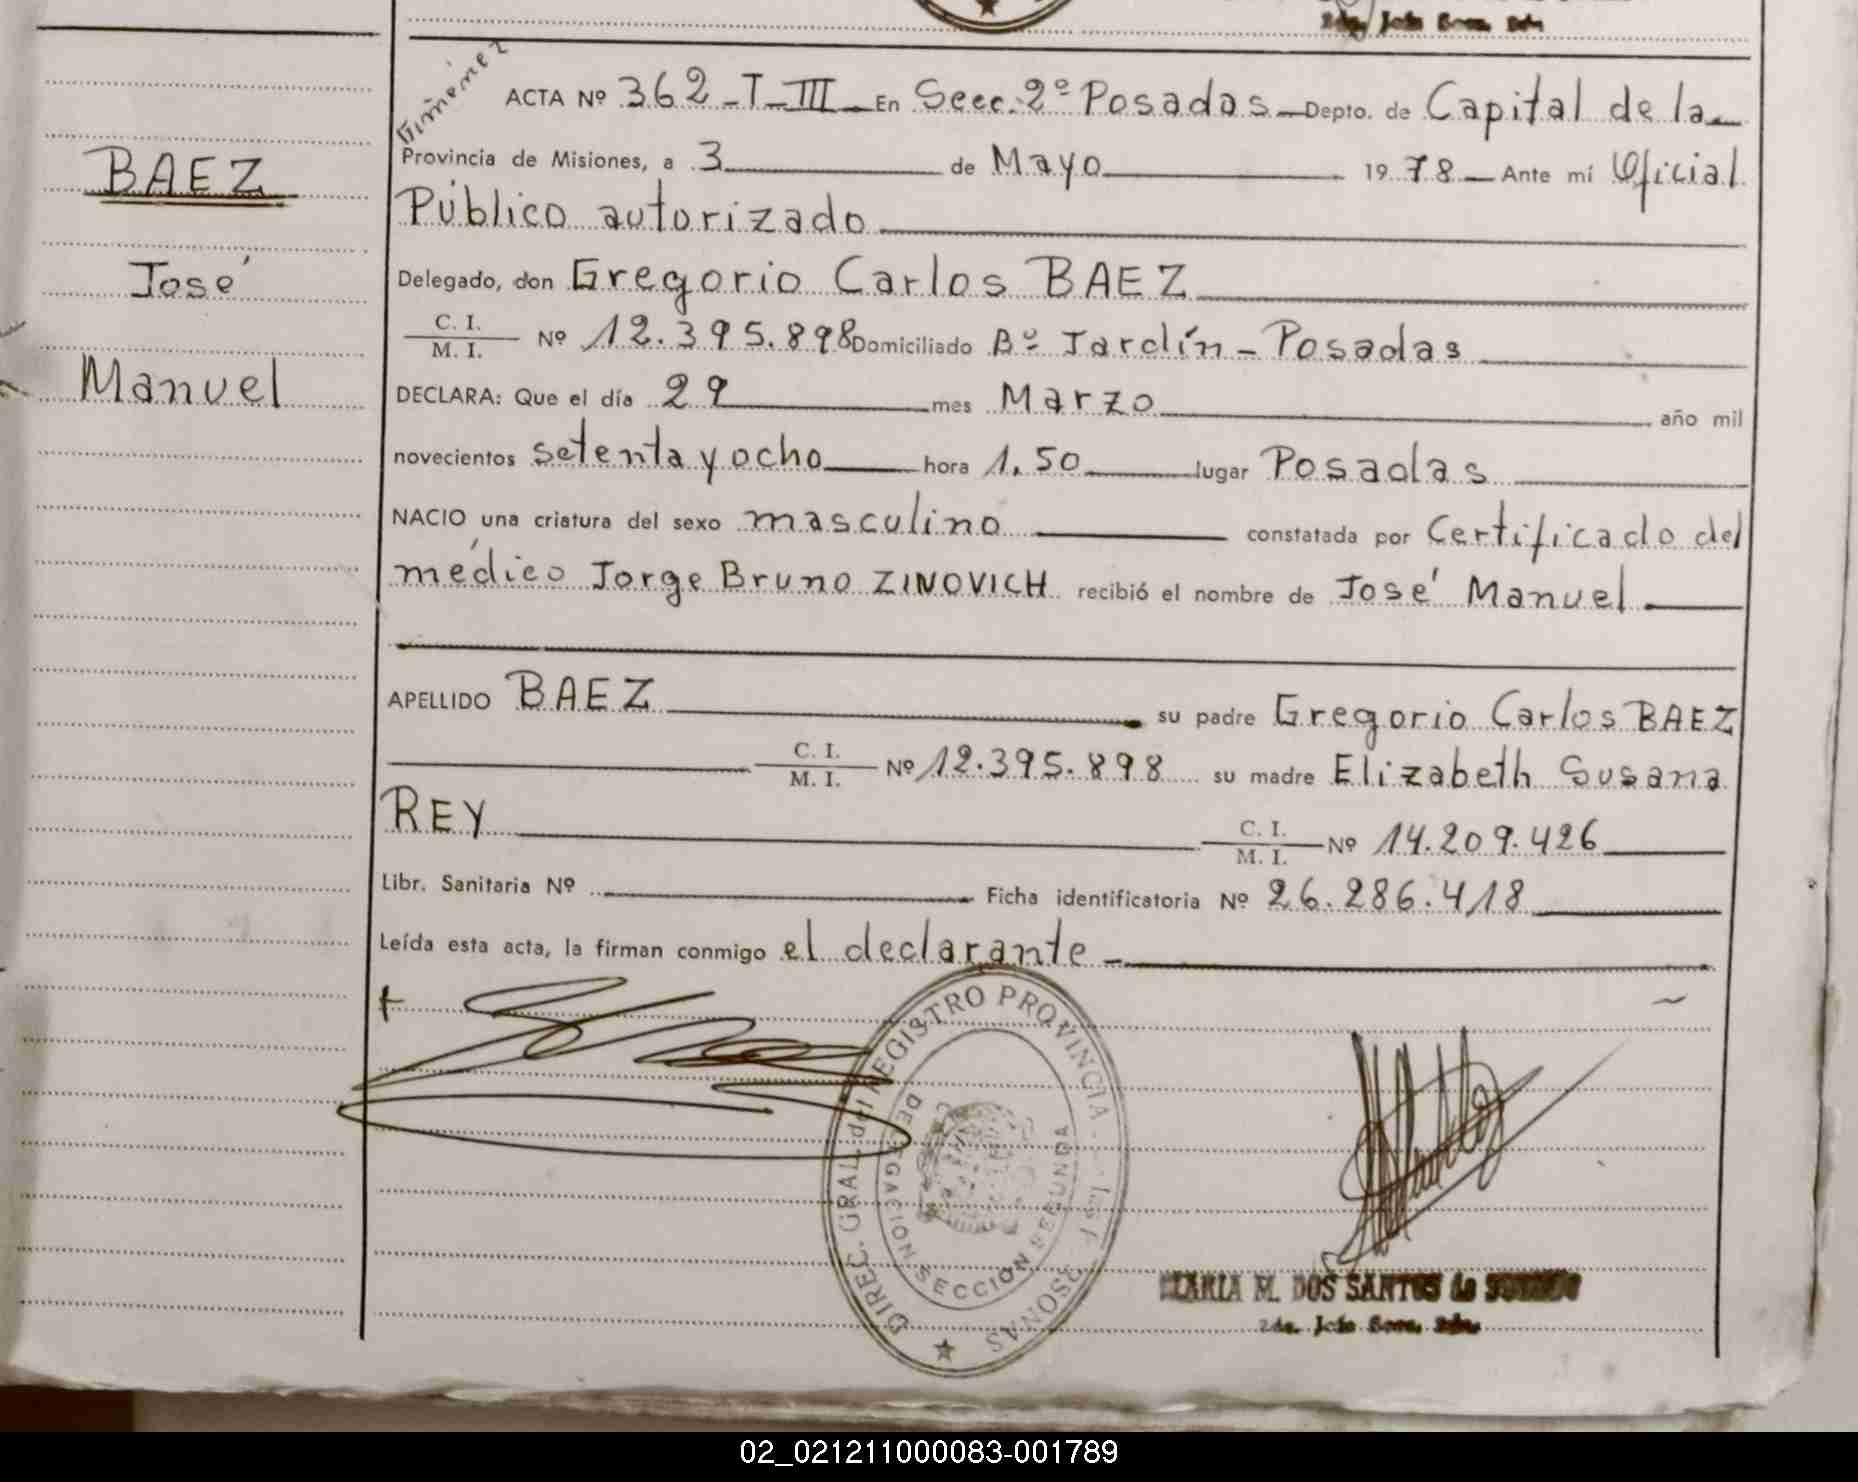 2da. Jefe Secc. 2da.
Giménez
ACTA Nº 362 - T - III En Secc. 2º Posadas Depto. de Capital de la
Provincia de Misiones, a 3 de Mayo 1978 Ante mí Oficial
Público autorizado
BAEZ
José
Manuel
Delegado, don Gregorio Carlos BAEZ
C. I.
M. I. Nº 12.395.898 Domiciliado Bº Jardín - Posadas
DECLARA: Que el día 29 mes Marzo año mil
novecientos setenta y ocho hora 1.50 lugar Posadas
NACIO una criatura del sexo masculino constatada por Certificado del
médico Jorge Bruno ZINOVICH recibió el nombre de José Manuel
APELLIDO BAEZ su padre Gregorio Carlos BAEZ
C. I.
M. I. Nº 12.395.898 su madre Elizabeth Susana
REY C. I.
M. I. Nº 14.209.426
Libr. Sanitaria Nº Ficha identificatoria Nº 26.286.418
Leída esta acta, la firman conmigo el declarante -
DIREC. GRAL. del REGISTRO PROVINCIAL de las PERSONAS
DELEGACION SECCION SEGUNDA
MARIA M. DOS SANTOS de
2da. Jefe Secc. 2da.
02_021211000083-001789